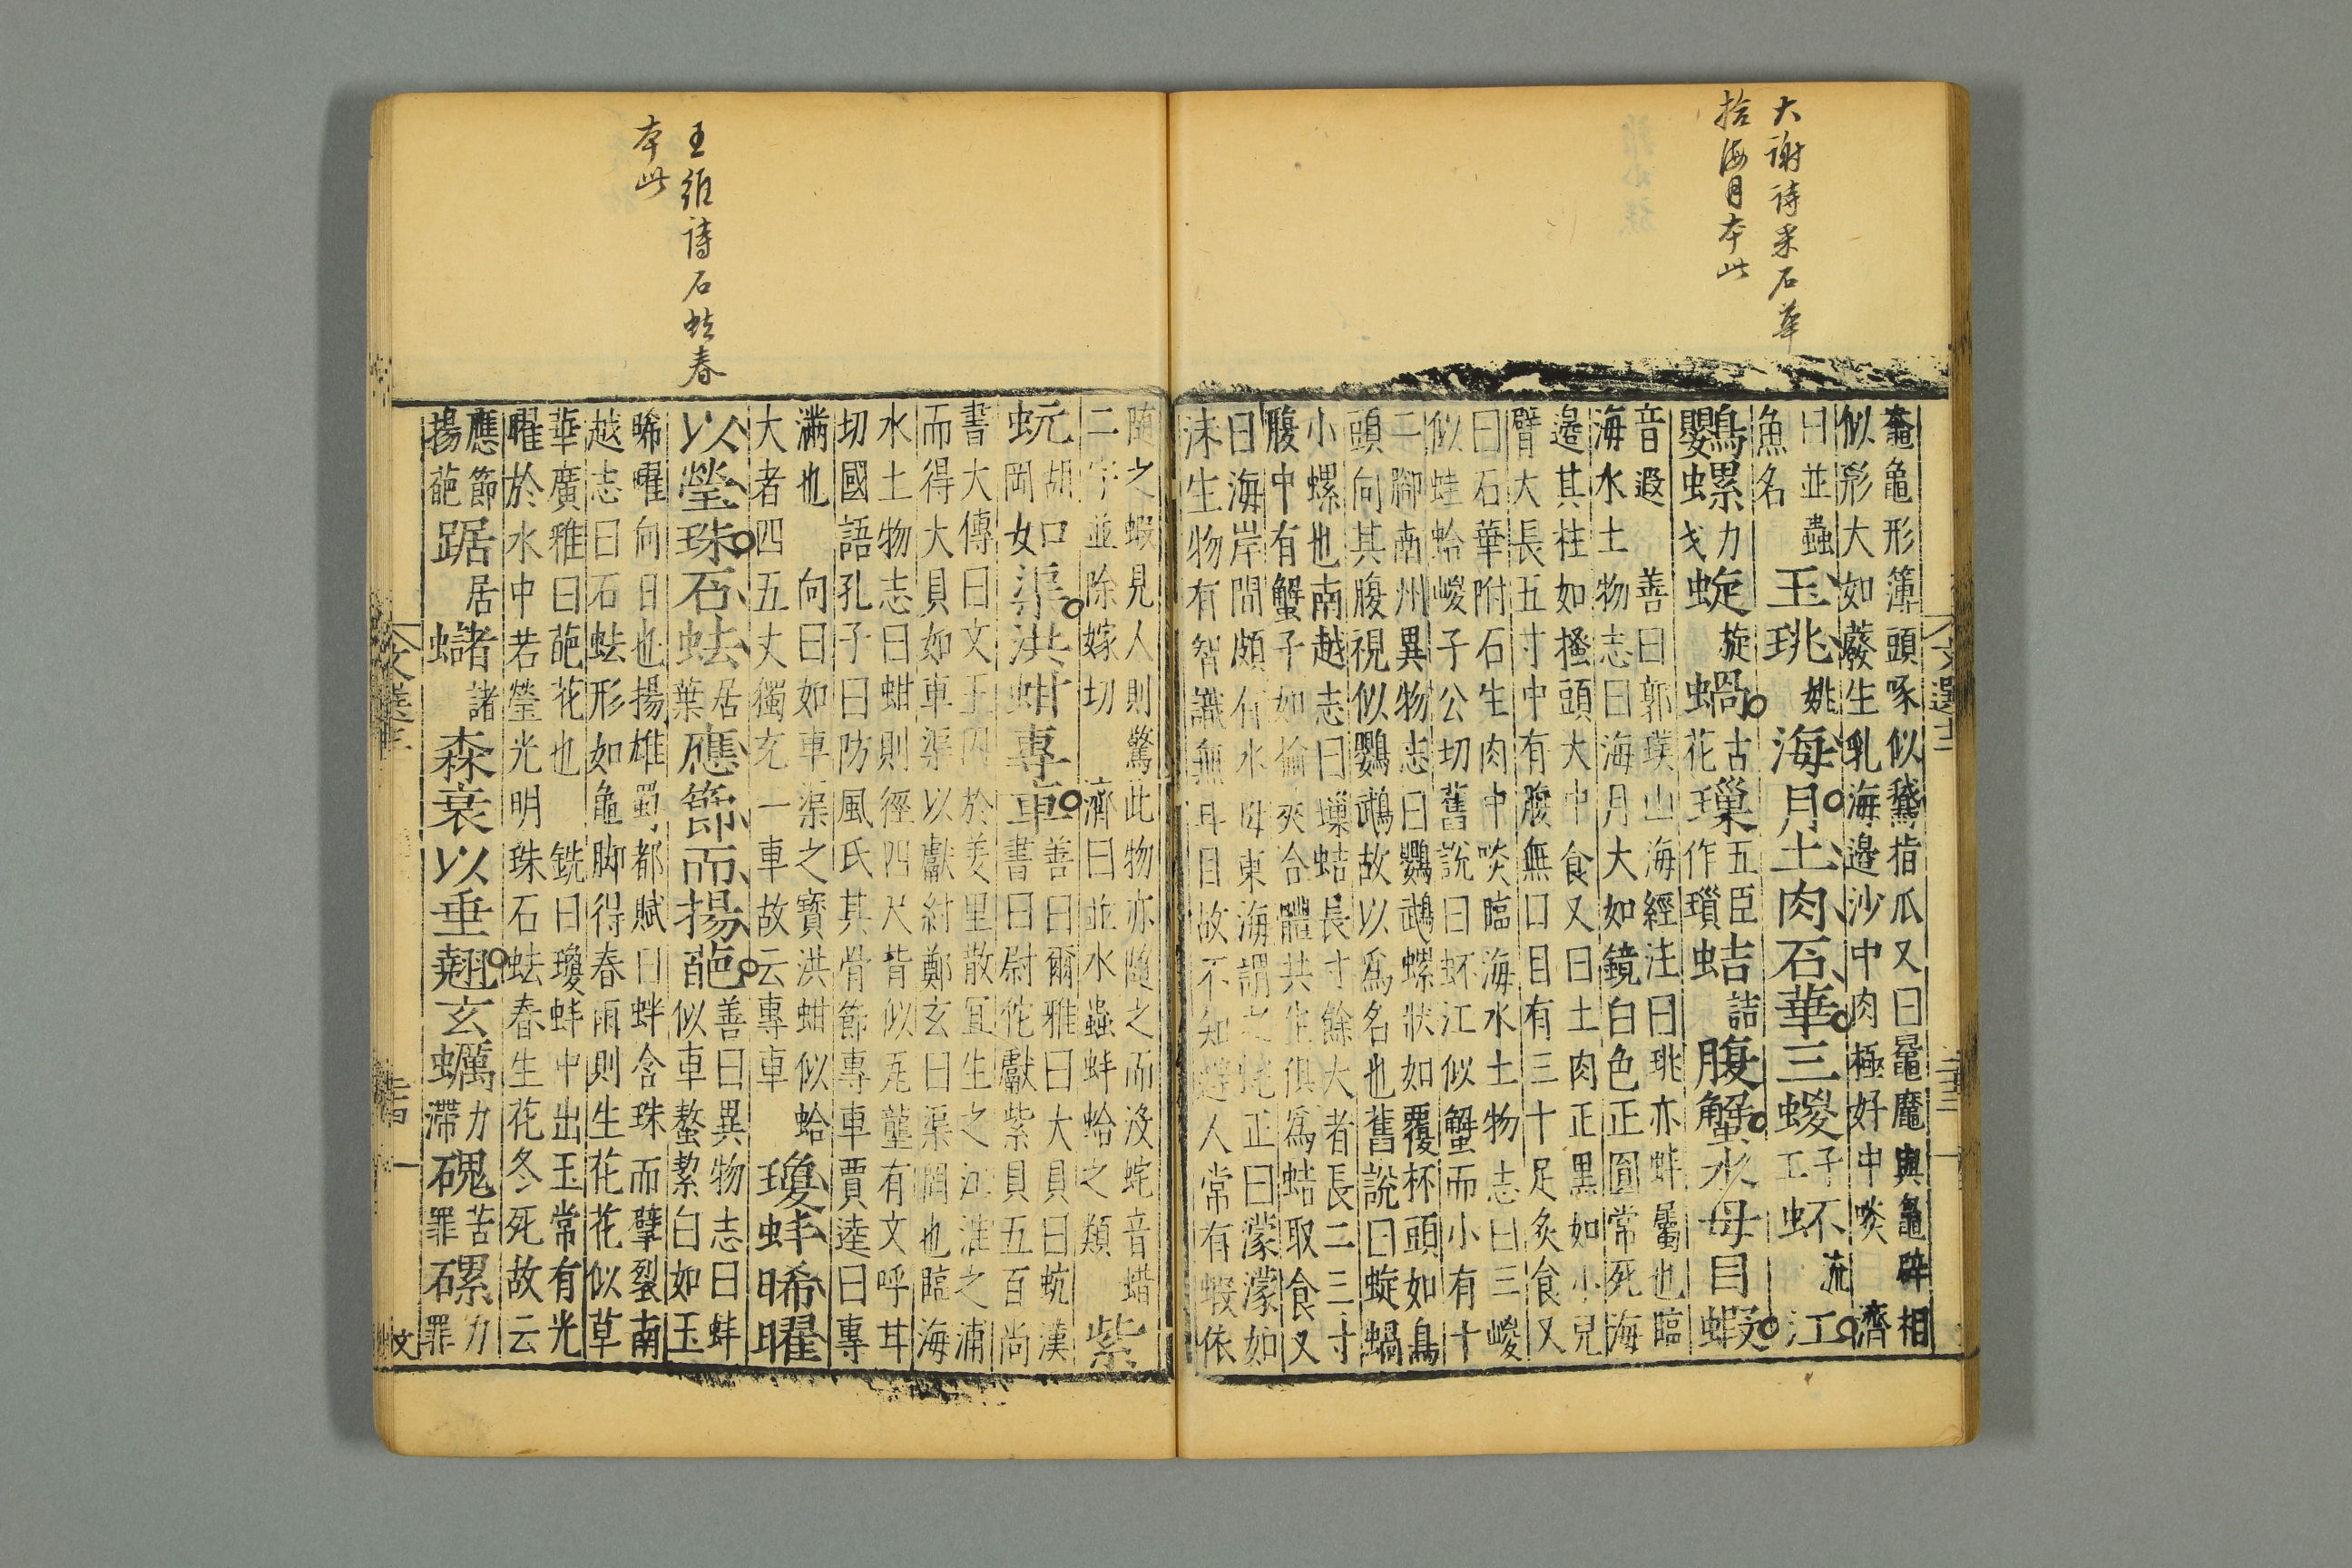 大謝詩采石華
拾海月本此
鼇龜形薄頭啄似鵞指爪又曰鼂魔與鼊辟相
似形大如蕟生乳海邊沙中肉極好中啖濟
曰並蟲
魚名
玉珧姚海月土肉石華三蝬子工蚢流江
鸚螺力戈蜁旋蝸古花璅五臣作瑣蛣詰腹蟹水母目蝦
音遐善曰郭璞山海經注曰珧亦蚌屬也臨
海水土物志曰海月大如鏡白色正圓常死海
邊其柱如搔頭大中食又曰土肉正黑如小兒
臂大長五寸中有腹無口目有三十足炙食又
曰石華附石生肉中啖臨海水土物志曰三蝬
似蛙蛤蝬子公切舊說曰蚢江似蟹而小有十
二脚南州異物志曰鸚鵡螺狀如覆杯頭如鳥
頭向其腹視似鸚鵡故以爲名也舊說曰蜁蝸
小螺也南越志曰璅蛣長寸餘大者長二三寸
腹中有蟹子如榆莢合體共生俱爲蛣取食又
曰海岸間頗有水母東海謂之𧉫正曰濛濛如
沬生物有智識無耳目故不知避人常有蝦依
隨之蝦見人則驚此物亦隨之而沒𧉫音蜡
二字並除嫁切濟曰並水蟲蚌蛤之類紫
蚖胡岡口女渠洪蚶專車善曰爾雅曰大貝曰蚢漢
書曰尉佗獻紫貝五百尚
書大傳曰文王囚於羑里散冝生之江淮之浦
而得大貝如車渠以獻紂鄭玄曰渠罔也臨海
水土物志曰蚶則徑四尺背似瓦壟有文呼甘
切國語孔子曰防風氏其骨節專車賈逵曰專
滿也向曰如車渠之寶洪蚶似蛤
大者四五丈獨充一車故云專車
瓊蚌晞曜
以瑩珠石蜐居葉應節而揚葩善曰異物志曰蚌
似車螯絜白如玉
晞曜向日也揚雄蜀都賦曰蚌含珠而擘裂南
越志曰石蜐形如龜脚得春雨則生花花似草
華廣雅曰葩花也銑曰瓊蚌中出玉常有光
曜於水中若瑩光明珠石蜐春生花冬死故云
應節
揚葩
踞居蠩諸森衰以垂翹玄蠣力滯磈苦罪磥力罪
王維詩石蜐春
本此